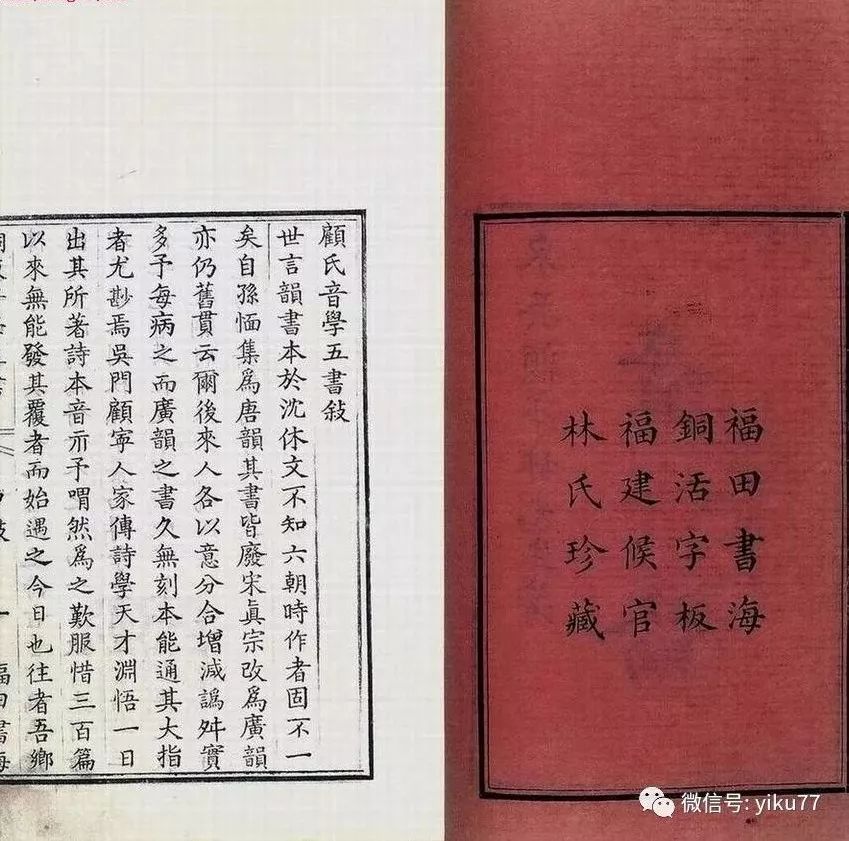 福田書海
銅活字板
福建候官
林氏珍藏
顧氏音學五書敍
世言韻書本於沈休文不知六朝時作者固不一
矣自孫愐集爲唐韻其書皆廢宋眞宗改爲廣韻
亦仍舊貫云爾後來人各以意分合增減譌舛實
多予每病之而廣韻之書久無刻本能通其大指
者尤尟焉吳門顧寧人家傳詩學天才淵悟一日
出其所著詩本音示予喟然爲之歎服惜三百篇
以來無能發其覆者而始遇之今日也往者吾鄉
福田書海
微信号: yiku77